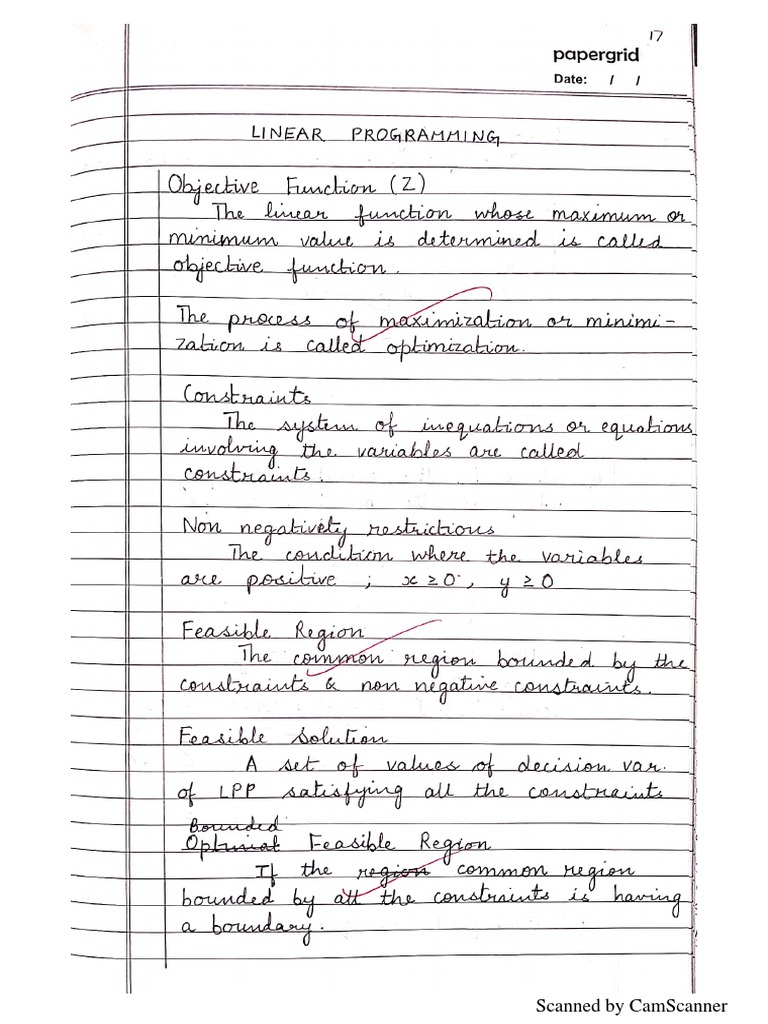 17
papergrid
Date: / /
LINEAR PROGRAMMING
Objective Function (Z)
The linear function whose maximum or
minimum value is determined is called
objective function.
The process of maximization or minimi-
zation is called optimization.
Constraints
The system of inequations or equations
involving the variables are called
constraints.
Non negativity restrictions
The condition where the variables
are positive ; x ≥ 0 , y ≥ 0
Feasible Region
The common region bounded by the
constraints & non negative constraints.
Feasible Solution
A set of values of decision var.
of LPP satisfying all the constraints
Bounded
Optimal Feasible Region
If the region common region
bounded by all the constraints is having
a boundary.
Scanned by CamScanner